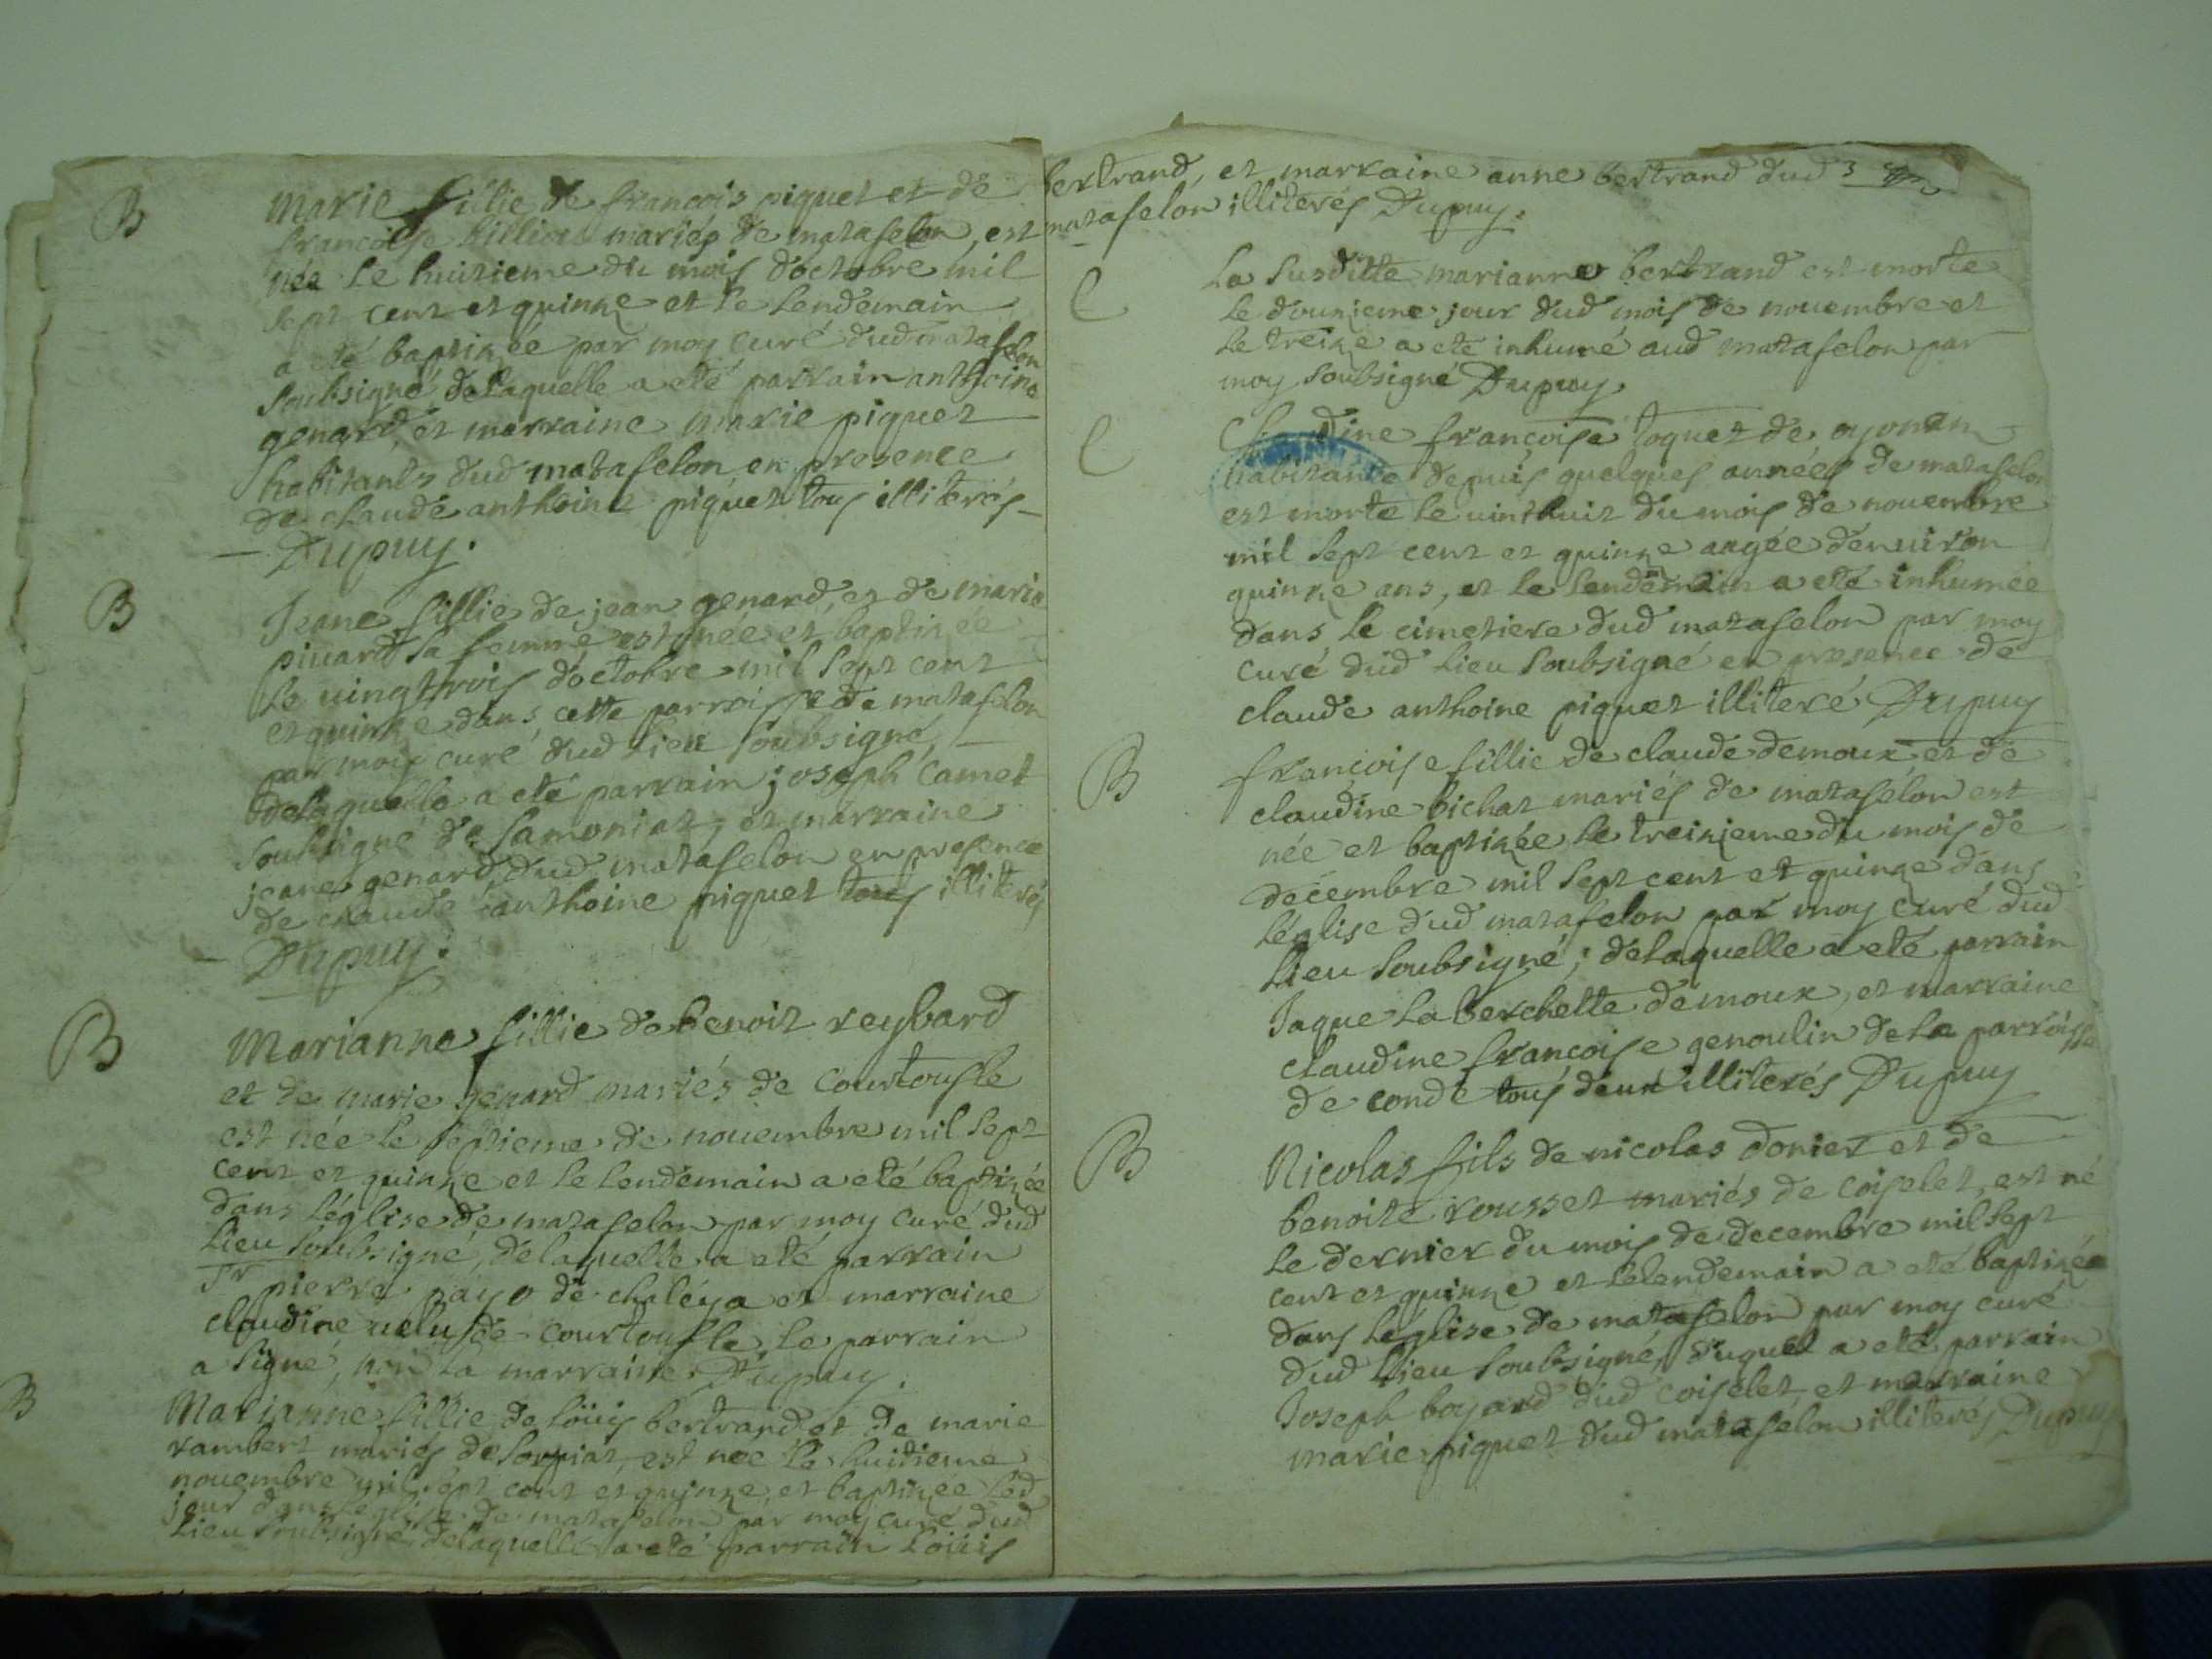 B
Marie fillie de francois piquet et de
francoise billion mariés de matafelon, est
née le huitieme du mois doctobre mil
sept cent et quinze et le lendemain
a eté baptizée par moy curé dud matafelon
soubsigné delaquelle a eté parrain anthoine
genard, et marraine marie piquet
habitants dud matafelon en presence
de claude anthoine piquet tous illiterés –
– Dupuy.
B
Jeane fillie de jean genard, et de marie
pivard sa femme est née et baptizée
le vingttrois doctobre mil sept cent
et quinze dans cette parroisse de matafelon
par moy curé dud lieu soubsigné –
delaquelle a eté parrain joseph Camet
soubsigné de samoniat, et marraine
jeane genard, dud matafelon en presence
de claude anthoine piquet tous illiterés
– Dupuy.
B
Marianne fillie de benoit reybard
et de marie genard mariés de Courtoufle
est née le septieme de novembre mil sept
cent et quinze et le lendemain a eté baptizée
dans léglise de matafelon par moy curé dud
lieu soubsigné, delaquelle a eté parrain
Sr pierre payo de chaléya et marraine
claudine velu de courtoufle, le parrain
a signé, non la marraine Dupuy.
B
Marianne fillie de loüis bertrand et de marie
rambert mariés de sorpiat, est née le huitieme
novembre mil sept cent et quinze, et baptizée led
jour dans leglise de matafelon par moy curé dud
lieu soubsigné delaquelle a eté parrain loüis
bertrand, et marraine anne bertrand dud 3
matafelon illiterés Dupuy.
C
La susditte marianne bertrand est morte
le douzieme jour dud mois de novembre et
le treize a eté inhumé aud matafelon par
moy soubsigné Dupuy.
C
Claudine françoise toquet de oyonan
habitante depuis quelques années de matafelon
est morte le vinthuit du mois de novembre
mil sept cent et quinze aagée denviron
quinze ans, et le lendemain a eté inhumée
dans le cimetiere dud matafelon par moy
curé dud lieu soubsigné en presence de
claude anthoine piquet illiteré Dupuy
B
françoise fillie de claude demoux et de
claudine bichat mariés de matafelon est
née et baptizée le treizieme du mois de
decembre mil sept cent et quinze dans
léglise dud matafelon par moy curé dud
lieu soubsigné; delaquelle a eté parrain
Jaque laberchette demoux, et marraine
claudine françoise genoulin de la parroisse
de condé tous deux illiterés Dupuy
B
Nicolas fils de nicolas donier et de
benoite rousset mariés de coiselet, est né
le dernier du mois de decembre mil sept
cent et quinze et le lendemain a eté baptizée
dans léglise de matafelon par moy curé
dud lieu soubsigné, duquel a eté parrain
Joseph boyard dud coiselet, et marraine
marie piquet dud matafelon illiterés Dupuy